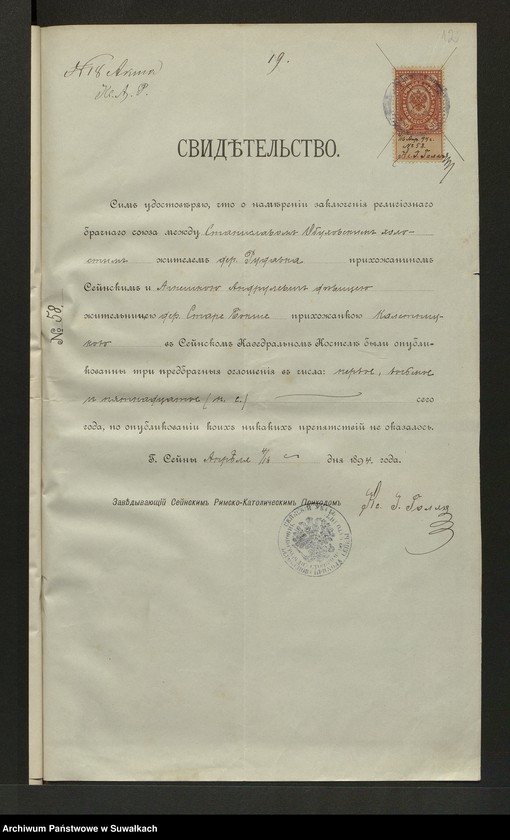 12
19.
N 18 Акта
Кс. А. Р.
№ 53
СВИДѢТЕЛЬСТВО.
Симъ удостовѣряю, что о намѣреніи заключенія религіознаго
брачнаго союза между Станиславомъ холо-
стымъ жителемъ дер. прихожаниномъ
Сейнскимъ и дѣвицею
жительницею дер. Старе прихожанкою
въ Сейнскомъ Каѳедральномъ Костелѣ были опубли-
кованны три предбрачныя оглашенія въ числа: первое, восьмое
и пятнадцатое (н. с.) сего
года, по опубликованіи коихъ никакихъ препятствій не оказалось.
№ 58.
Г. Сейны Апрѣля дня 1894 года.
Завѣдывающій Сейнскимъ Римско-Католическимъ Приходомъ
Кс. І. Голля
Archiwum Państwowe w Suwałkach